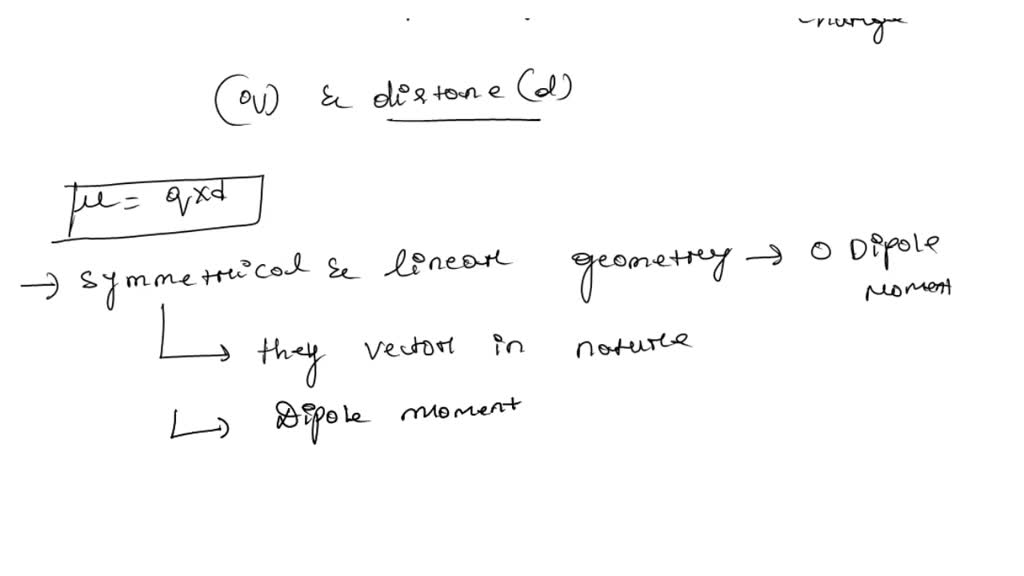 (q) & distane (d)
μ = q×d
→ symmetrical & linear geometry → 0 Dipole
moment
↳ they vector in nature
↳ Dipole moment